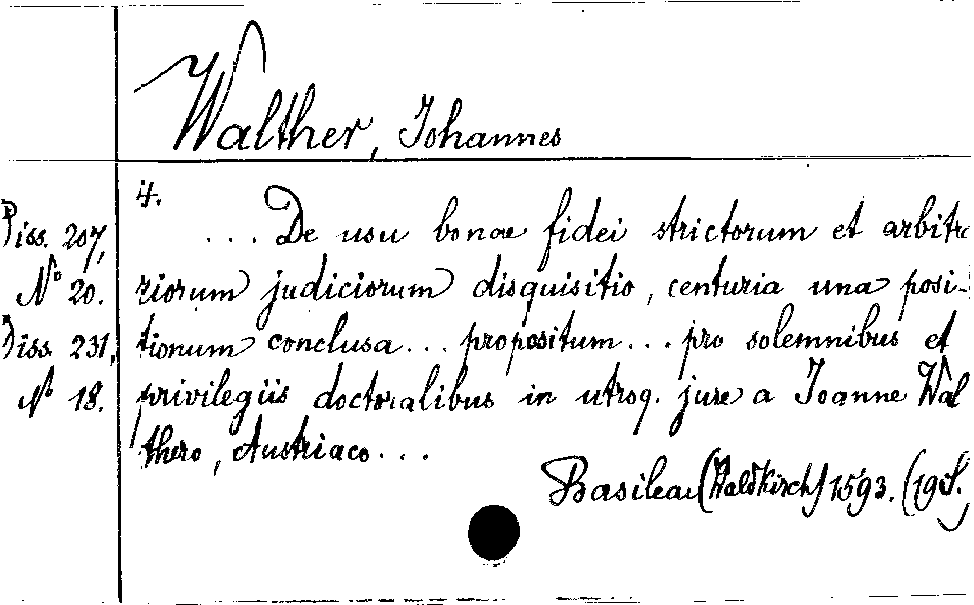 Walther, Johannes
4.
Diss. 207, ... De usu bonae fidei strictorum et arbitra
No 20. riorum judiciorum disquisitio, centuria una posi-
Diss. 231, tionum conclusa... propositum... pro solemnibus et
No 18. privilegiis doctoralibus in utroq. jure a Joanne Wal
thero, Austriaco...
Basileae (Waldkirch) 1593. (19 S.)